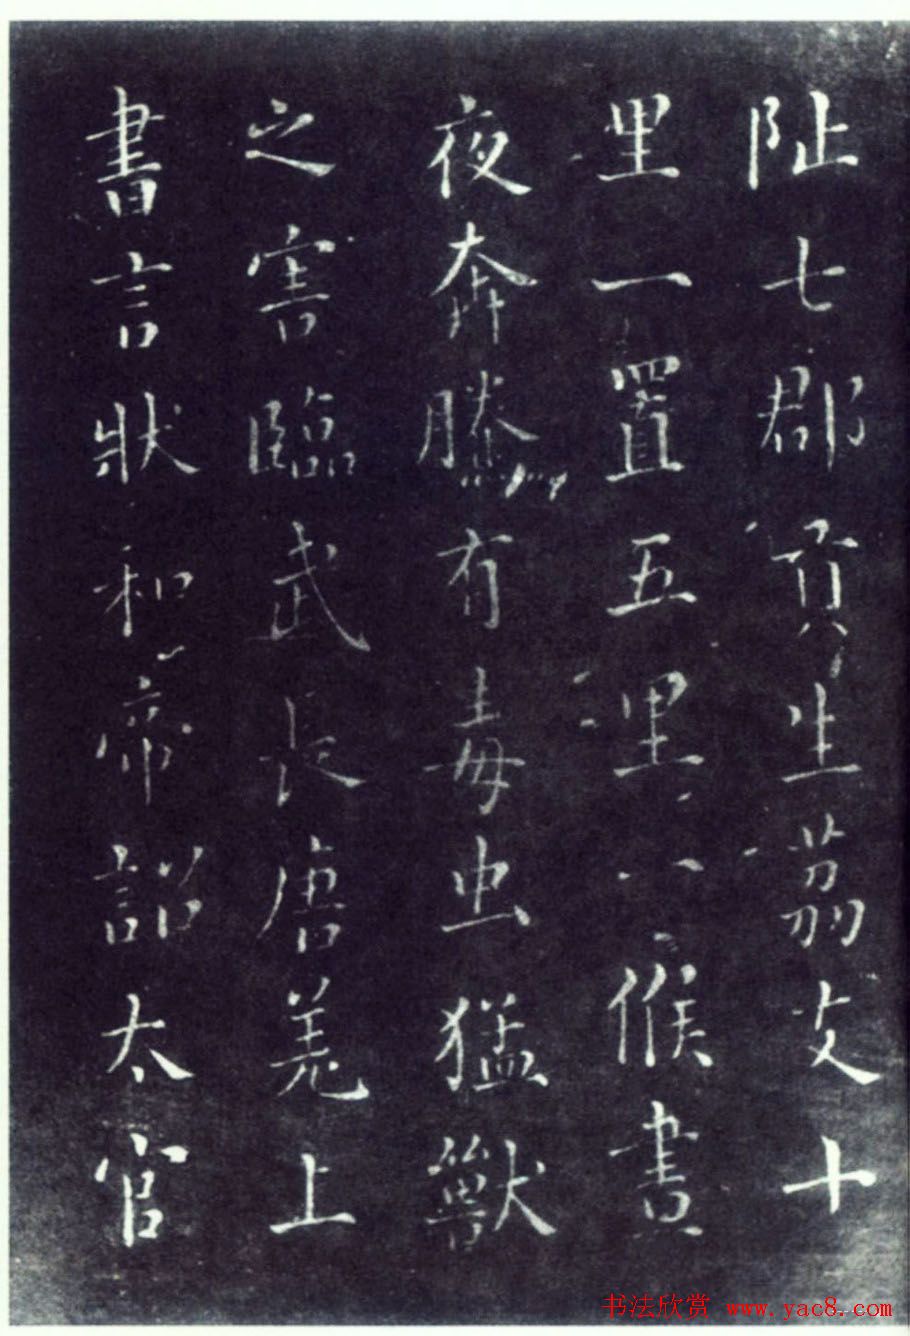 阯七郡貢生荔支十
里一置五里一候晝
夜奔騰有毒虫猛獸
之害臨武長唐羌上
書言狀和帝詔太官
书法欣赏 www.yac8.com